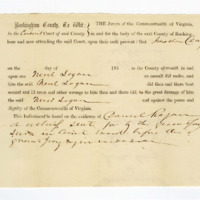 Rockingham County, To Wit: THE Jurors of the Commonwealth of Virginia,
in the Circuit Court of said County in and for the body of the said County of Rocking-
ham and now attending the said Court, upon their oath present: that
on the day of 186 in the County aforesaid in and
upon one Noul Logan an assault did make, and
him the said Noul Logan did then and there beat
wound and ill treat and other wrongs to him then and there did, to the great damage of him
the said Noul Logan and against the peace and
dignity of the Commonwealth of Virginia.
This Indictment is found on the evidence of Daniel Rogan
a witness sent for by the Grand Jury
sworn in Court and sent before the
grand jury